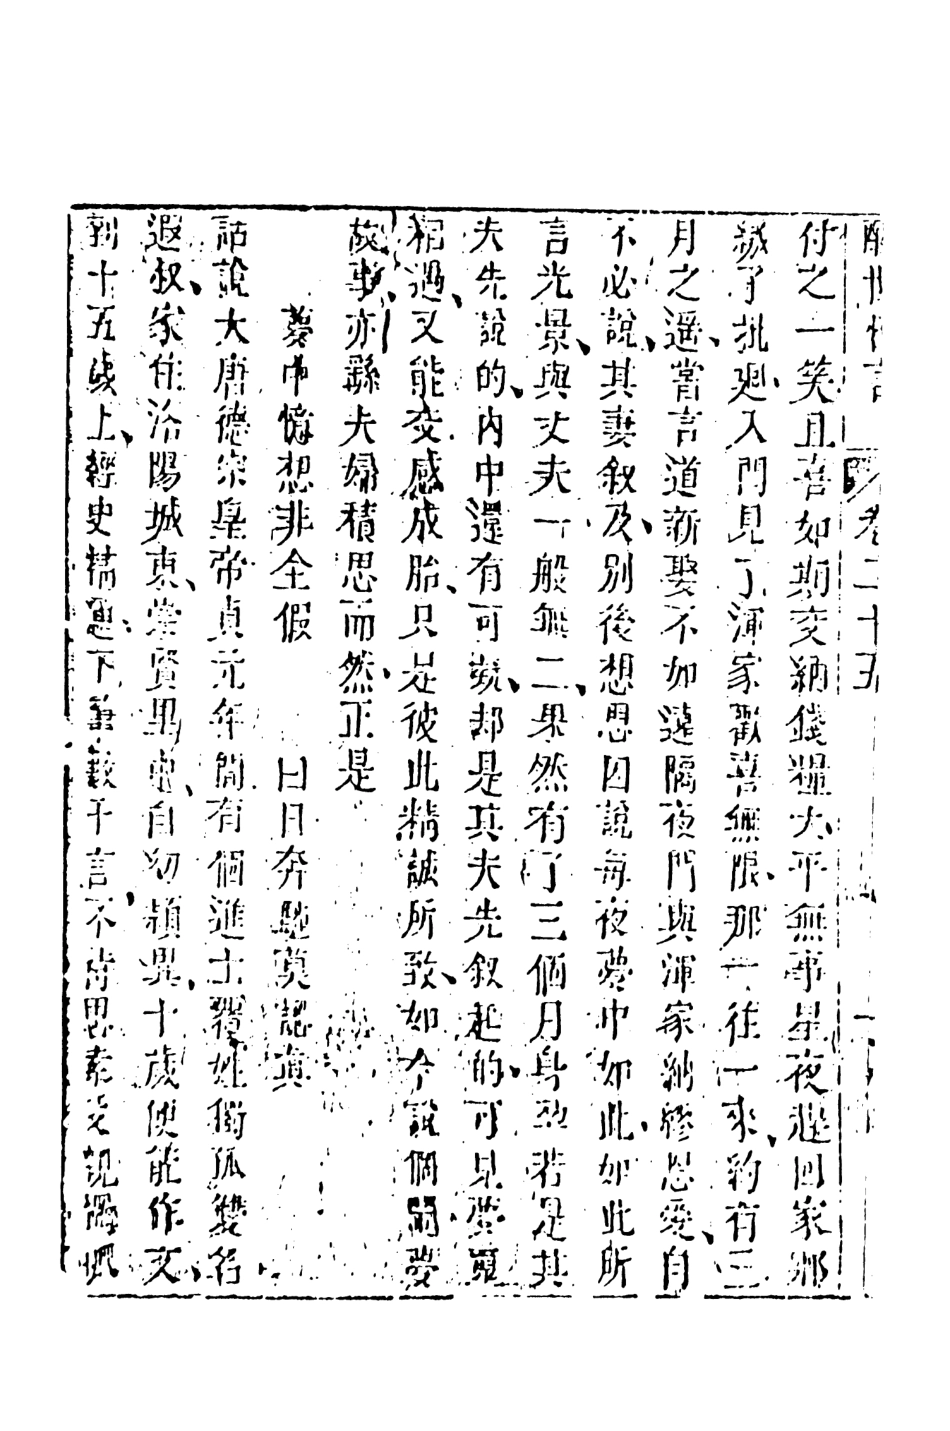 醒世恆言 卷二十五
付之一笑且喜如期交納錢糧太平無事星夜趕回家鄉
繳了批廻入門見了渾家歡喜無限那一往一來約有三
月之遥嘗言道新娶不如遠隔夜間與渾家綢繆恩愛自
不必說其妻叙及別後想思因說每夜夢中如此如此所
言光景與丈夫一般無二果然有了三個月身孕若是其
夫先說的內中還有可疑却是其夫先叙起的可見夢魂
相遇又能交感成胎只是彼此精誠所致如今說個鬧夢
故事亦繇夫婦積思而然正是
夢中憶想非全假 白日奔馳莫認真
話說大唐德宗皇帝貞元年間有個進士覆姓獨孤雙名
遐叔家住洛陽城東崇賢里中自幼穎異十歲便能作文
到十五歲上經史精通下筆數千言不待思索父親獨孤